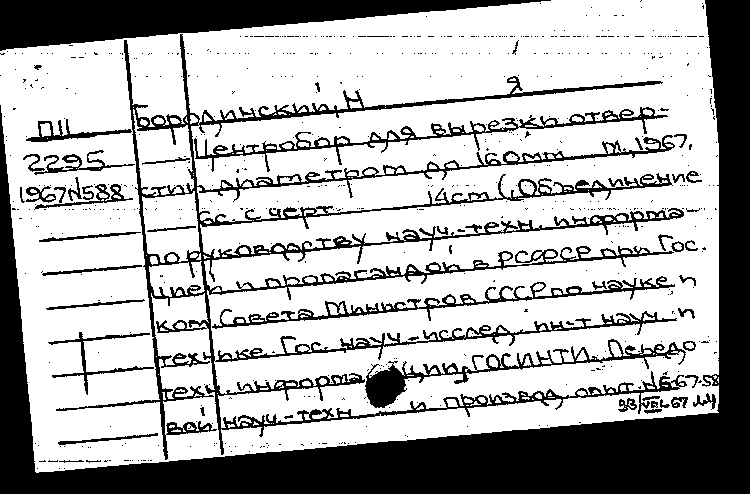 Я
Бородинский, Н
П11
Центробор для вырезки отвер-
2295
стий диаметром до 160мм М., 1967.
1967N588
6с. с черт. 14см (Объединение
по руководству науч.-техн. информа-
цией и пропагандой в РСФСР при Гос.
ком. Совета Министров СССР по науке и
технике. Гос. науч.-исслед. ин-т науч. и
техн. информации, ГОСИНТИ. Передо-
вой науч.-техн и производ. опыт. №6-67-58
67